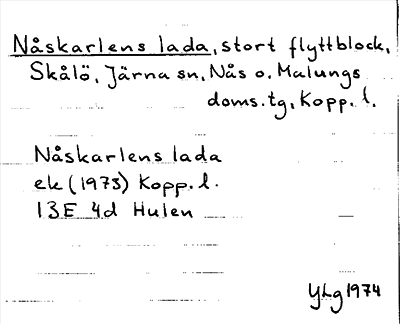 Nåskarlens lada, stort flyttblock,
Skålö, Järna sn, Nås o. Malungs
doms.tg, Kopp. l.
Nåskarlens lada
ek (1973) Kopp. l.
13E 4d Hulen
YLg 1974